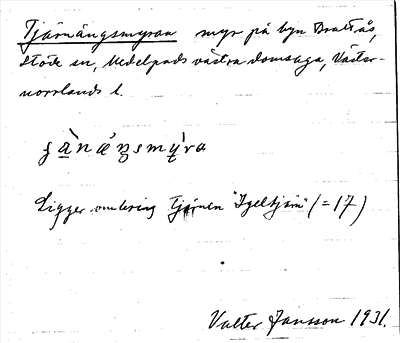 Tjärnängsmyran myr på byn Brattås,
Stöde sn, Medelpads västra domsaga, Väster-
norrlands l.
Ligger omkring tjärnen "Igeltjärn" (= 17)
Valter Jansson 1931.